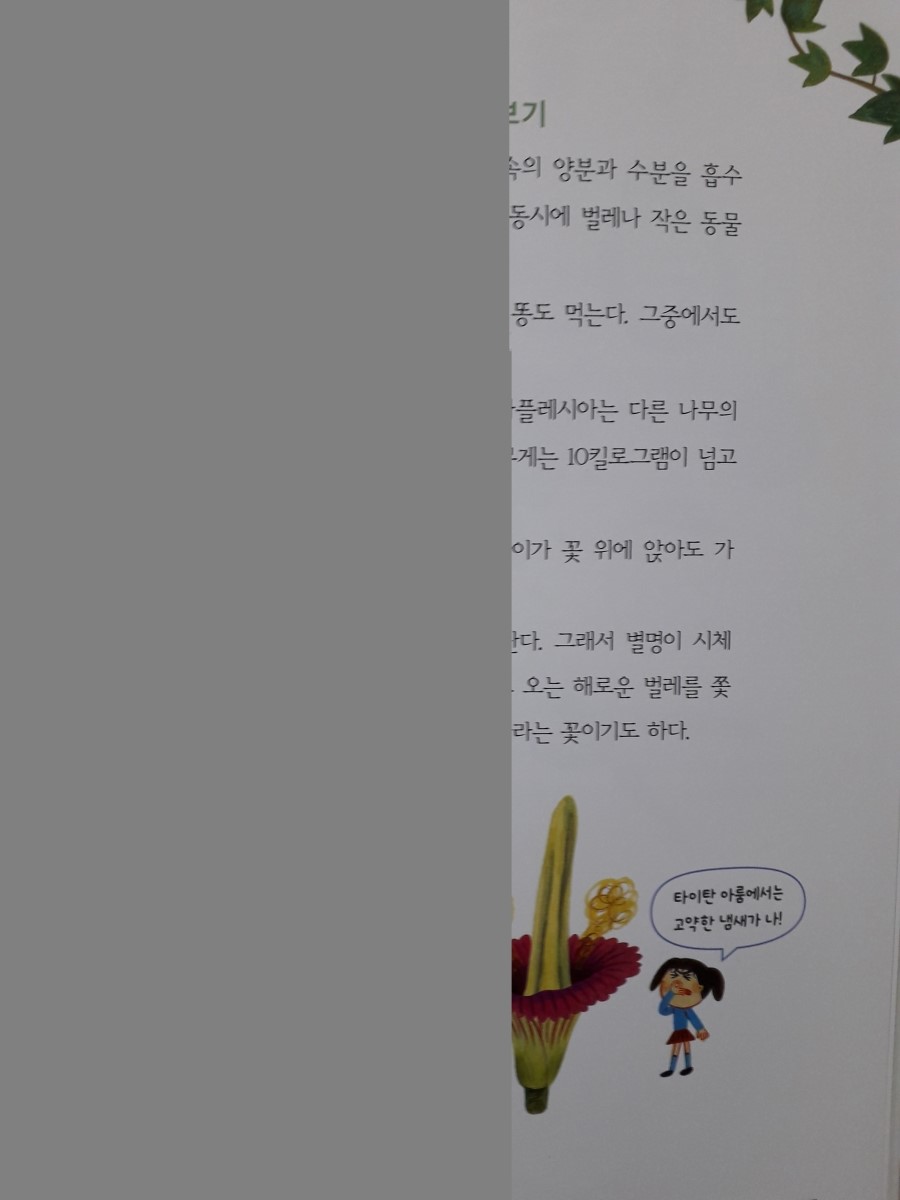 양분과 수분을 흡수
동시에 벌레나 작은 동물
똥도 먹는다. 그중에서도
다른 나무의
10킬로그램이 넘고
꽃 위에 앉아도 가
그래서 별명이 시체
오는 해로운 벌레를 쫓
꽃이기도 하다.
타이탄 아룸에서는
고약한 냄새가 나!